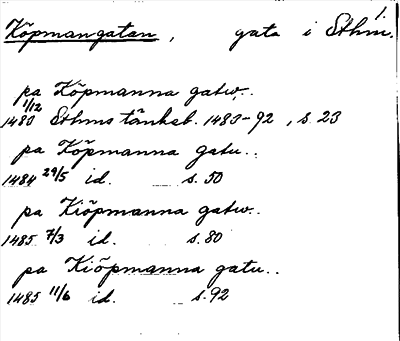 1.
Köpmangatan, gata i Sthm.
pa Köpmanna gatw..
1483 1/12 Sthms tänkeb. 1483-92, s. 23
pa Köpmanna gatu..
1484 29/5 id. s. 50
pa Kiöpmanna gatw..
1485 7/3 id. s. 80
pa Kiöpmanna gatu..
1485 11/6 id. s. 92